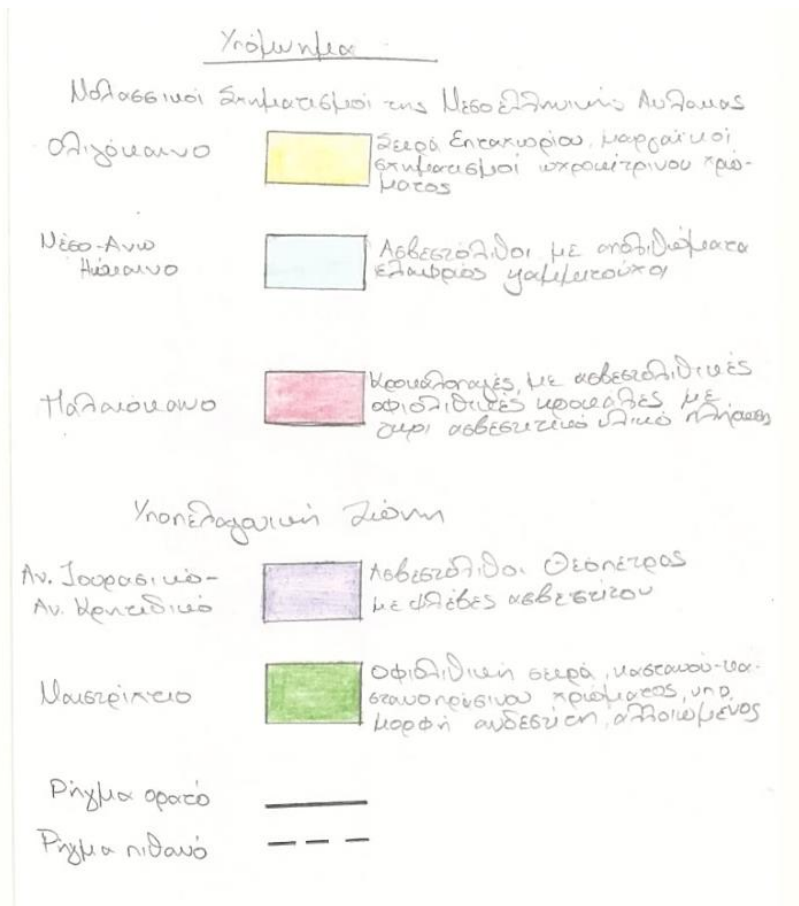 Υπόμνημα
Μολασσικοί Σχηματισμοί της Μεσοελληνικής Αυλακας
Ολιγόκαινο
Σειρά Επταχωρίου, μαργαϊκοί
σχηματισμοί ωχροκίτρινου χρώ-
ματος
Μέσο-Ανω
Ηώκαινο
Ασβεστόλιθοι με αποτιθέματα
ελαφριός ψαμμιτούχοι
Παλαιόκαινο
Κροκαλοπαγές, με ασβεστολιθικές
οφιολιθικές κροκάλες με
γκρι ασβεστιτικό υλικό πλήρωσης
Υποπελαγονική Ζώνη
Αν. Ιουρασικό-
Αν. Κρητιδικό
Ασβεστόλιθοι Θεόπετρας
με φλέβες ασβεστίτου
Μαιστρίχτιο
Οφιολιθική σειρά, καστανού-κα-
στανοπράσινου χρώματος, υπό
μορφή ανδεσίτη, αλλοιωμένος
Ρήγμα ορατό
Ρήγμα πιθανό